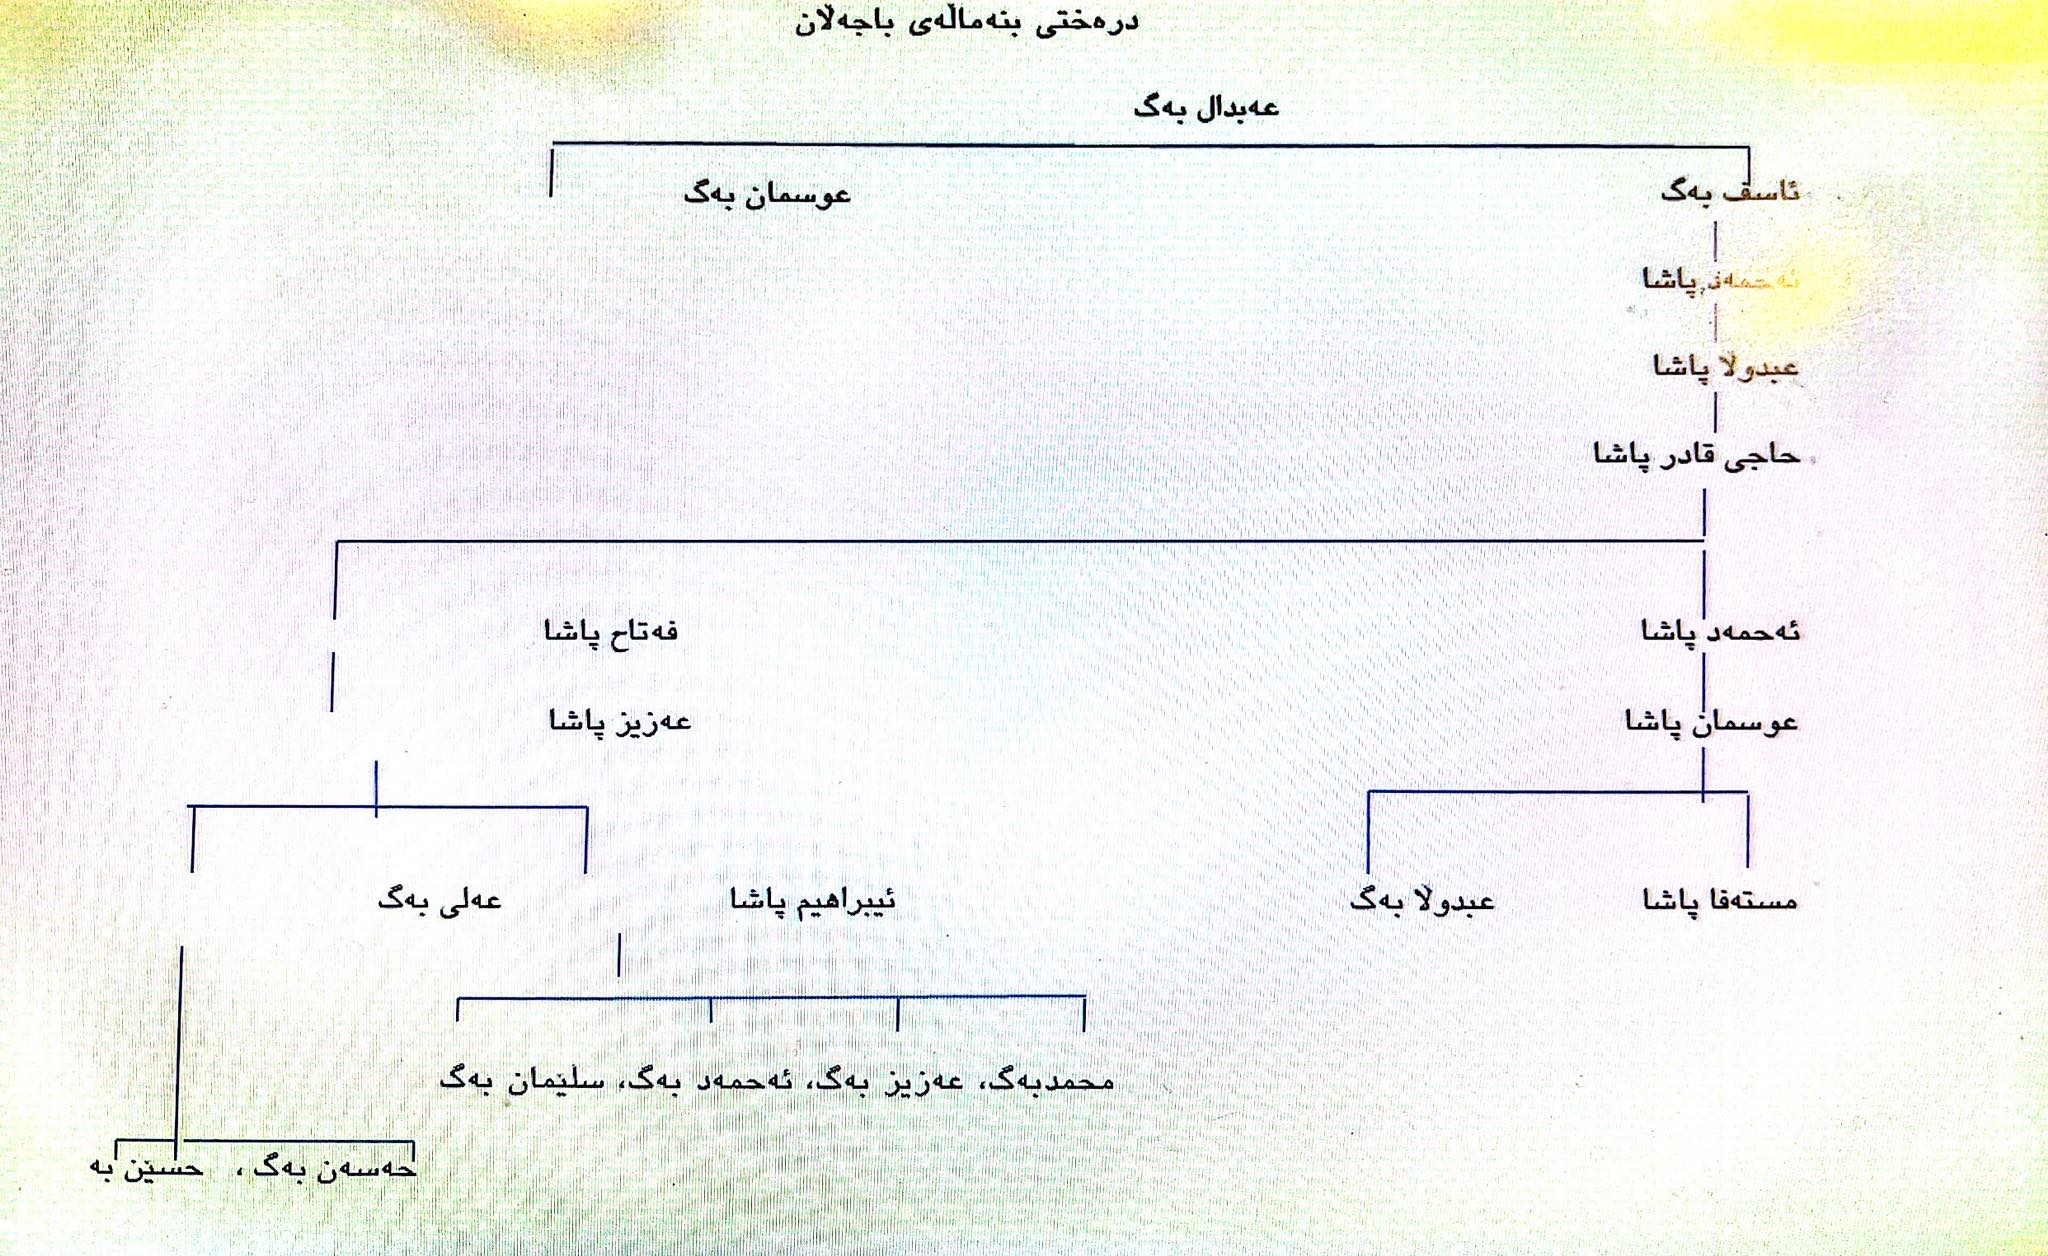 درەختی بنەماڵەی باجەڵان
عەبدال بەگ
ئاسف بەگ
عوسمان بەگ
ئەحمەد پاشا
عبدولا پاشا
حاجی قادر پاشا
ئەحمەد پاشا
فەتاح پاشا
عوسمان پاشا
عەزیز پاشا
مستەفا پاشا
عبدوڵا بەگ
ئیبراهیم پاشا
عەلی بەگ
محمدبەگ، عەزیز بەگ، ئەحمەد بەگ، سلێمان بەگ
حەسەن بەگ ، حسێن بە